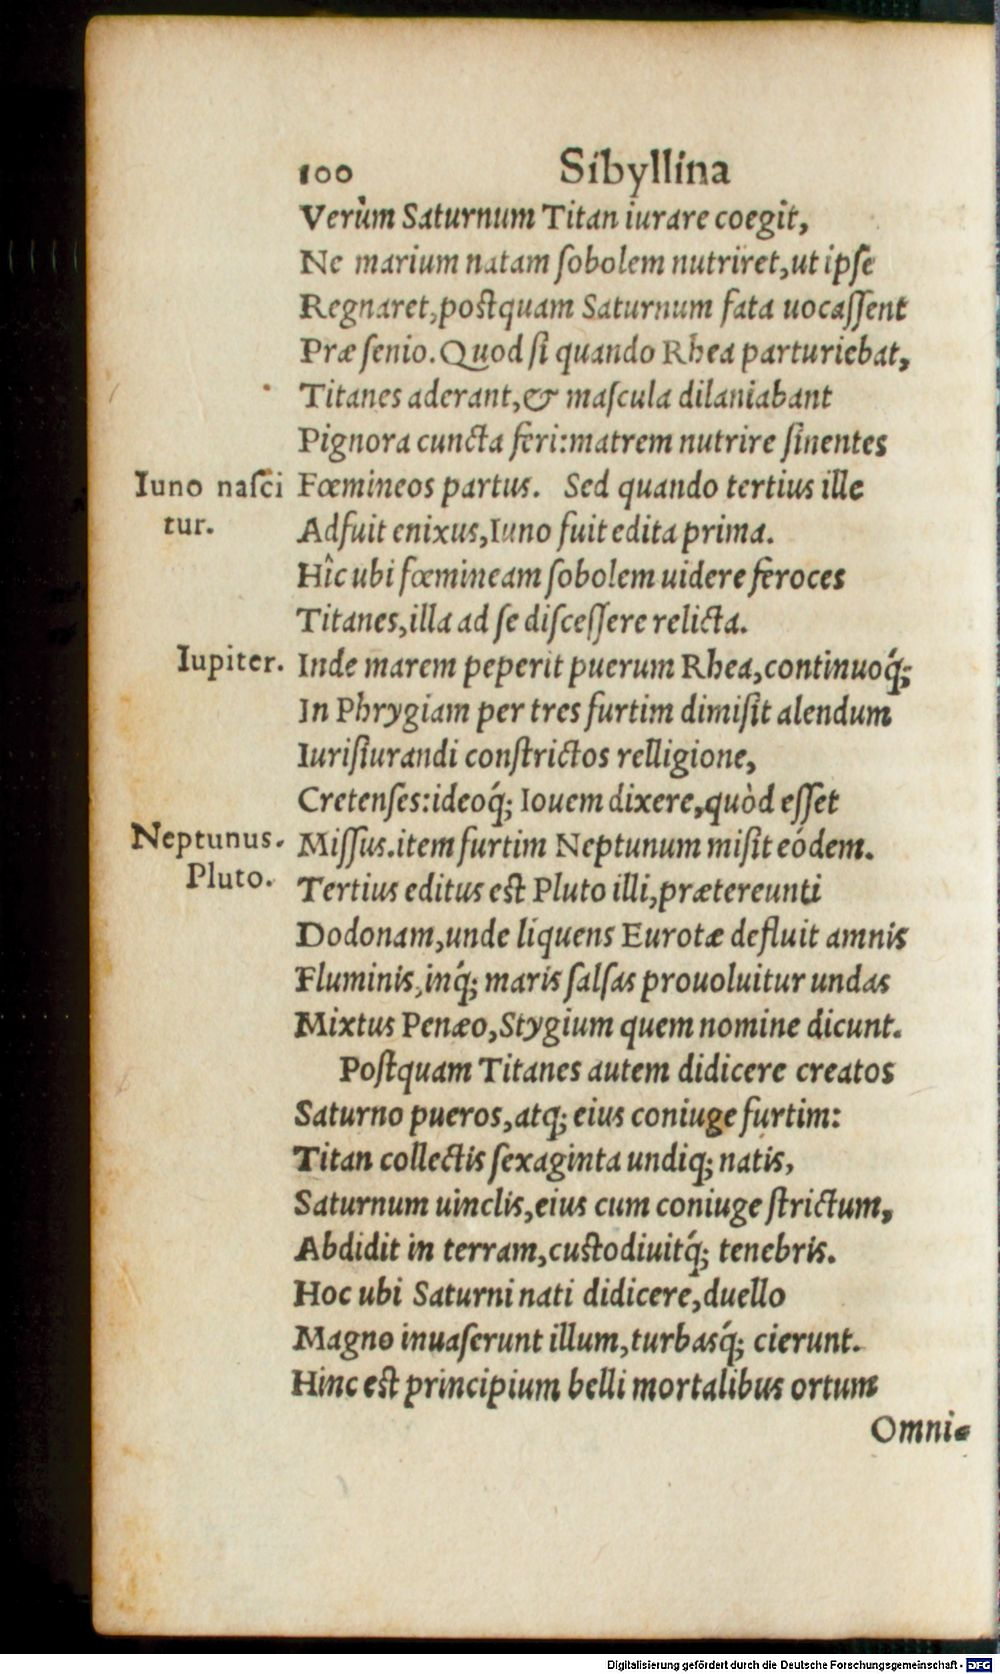 100 Sibyllina
Verùm Saturnum Titan iurare coegit,
Ne marium natam ſobolem nutriret, ut ipſe
Regnaret, poſtquam Saturnum fata uocaſſent
Præ ſenio. Quod ſi quando Rhea parturiebat,
Titanes aderant, & maſcula dilaniabant
Pignora cuncta feri: matrem nutrire ſinentes
Iuno naſci
tur.
Fœmineos partus. Sed quando tertius ille
Adfuit enixus, Iuno fuit edita prima.
Hîc ubi fœmineam ſobolem uidere feroces
Titanes, illa ad ſe diſceſſere relicta.
Iupiter.
Inde marem peperit puerum Rhea, continuoq́;
In Phrygiam per tres furtim dimiſit alendum
Iuriſiurandi conſtrictos relligione,
Cretenſes: ideoq́; Iouem dixere, quòd eſſet
Neptunus.
Miſſus. item furtim Neptunum miſit eódem.
Pluto.
Tertius editus eſt Pluto illi, prætereunti
Dodonam, unde liquens Eurotæ defluit amnis
Fluminis, inq́; maris ſalſas prouoluitur undas
Mixtus Penæo, Stygium quem nomine dicunt.
Poſtquam Titanes autem didicere creatos
Saturno pueros, atq; eius coniuge furtim:
Titan collectis ſexaginta undiq; natis,
Saturnum uinclis, eius cum coniuge ſtrictum,
Abdidit in terram, cuſtodiuitq́; tenebris.
Hoc ubi Saturni nati didicere, duello
Magno inuaſerunt illum, turbasq́; cierunt.
Hinc eſt principium belli mortalibus ortum
Omni-
Digitalisierung gefördert durch die Deutsche Forschungsgemeinschaft - DFG